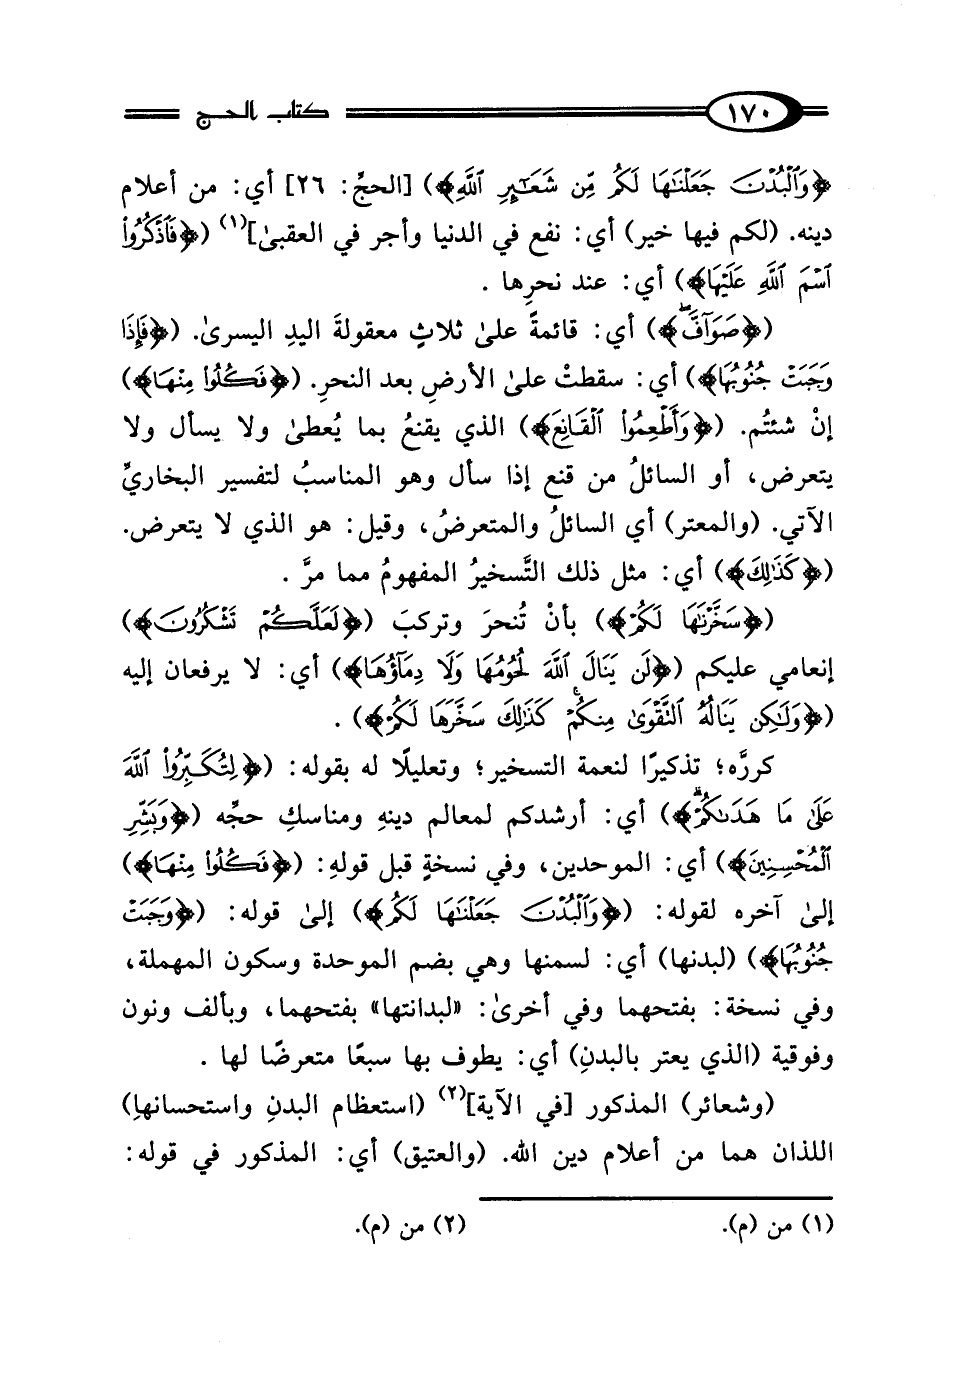 ١٧٠ كتاب الحج
﴿وَٱلۡبُدۡنَ جَعَلۡنَٰهَا لَكُم مِّن شَعَٰٓئِرِ ٱللَّهِ﴾) [الحجّ: ٢٦] أي: من أعلام
دينه. (لكم فيها خير) أي: نفع في الدنيا وأجر في العقبىٰ](١) (﴿فَٱذۡكُرُواْ
ٱسۡمَ ٱللَّهِ عَلَيۡهَا﴾) أي: عند نحرِها .
(﴿صَوَآفَّۖ﴾) أي: قائمةً علىٰ ثلاثٍ معقولةَ اليدِ اليسرىٰ. (﴿فَإِذَا
وَجَبَتۡ جُنُوبُهَا﴾) أي: سقطتْ علىٰ الأرضِ بعد النحرِ. (﴿فَكُلُواْ مِنۡهَا﴾)
إنْ شئتُم. (﴿وَأَطۡعِمُواْ ٱلۡقَانِعَ﴾) الذي يقنعُ بما يُعطىٰ ولا يسأل ولا
يتعرض، أو السائلُ من قنع إذا سأل وهو المناسبُ لتفسير البخاريِّ
الآتي. (والمعتر) أي السائلُ والمتعرضُ، وقيل: هو الذي لا يتعرض.
(﴿كَذَٰلِكَ﴾) أي: مثل ذلك التَّسخيرُ المفهومُ مما مرَّ .
(﴿سَخَّرۡنَٰهَا لَكُمۡ﴾) بأنْ تُنحرَ وتركبَ (﴿لَعَلَّكُمۡ تَشۡكُرُونَ﴾)
إنعامي عليكم (﴿لَن يَنَالَ ٱللَّهَ لُحُومُهَا وَلَا دِمَآؤُهَا﴾) أي: لا يرفعان إليه
(﴿وَلَٰكِن يَنَالُهُ ٱلتَّقۡوَىٰ مِنكُمۡۚ كَذَٰلِكَ سَخَّرَهَا لَكُمۡ﴾) .
كررَّه؛ تذكيرًا لنعمة التسخير؛ وتعليلًا له بقوله: (﴿لِتُكَبِّرُواْ ٱللَّهَ
عَلَىٰ مَا هَدَىٰكُمۡۗ﴾) أي: أرشدكم لمعالم دينهِ ومناسكِ حجِّه (﴿وَبَشِّرِ
ٱلۡمُحۡسِنِينَ﴾) أي: الموحدين، وفي نسخةٍ قبل قولهِ: (﴿فَكُلُواْ مِنۡهَا﴾)
إلىٰ آخره لقوله: (﴿وَٱلۡبُدۡنَ جَعَلۡنَٰهَا لَكُم﴾) إلىٰ قوله: (﴿وَجَبَتۡ
جُنُوبُهَا﴾) (لبدنها) أي: لسمنها وهي بضم الموحدة وسكون المهملة،
وفي نسخة: بفتحهما وفي أخرىٰ: «لبدانتها» بفتحهما، وبألف ونون
وفوقية (الذي يعتر بالبدنِ) أي: يطوف بها سبعًا متعرضًا لها .
(وشعائر) المذكور [في الآية](٢) (استعظام البدنِ واستحسانها)
اللذان هما من أعلام دين الله. (والعتيق) أي: المذكور في قوله:
(١) من (م). (٢) من (م).